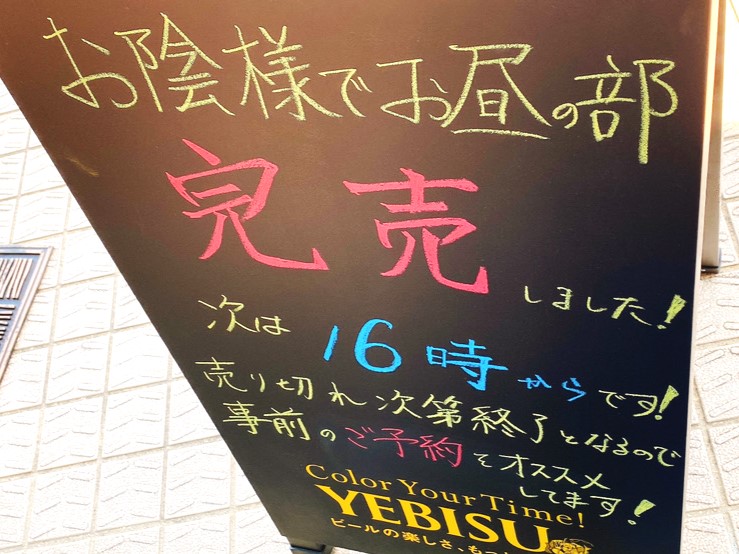 お陰様でお昼の部
完売
しました!
次は 16時からです!
売り切れ次第終了となるので
事前のご予約をオススメ
してます!
Color Your Time!
YEBISU
ビールの楽しさ、もっ